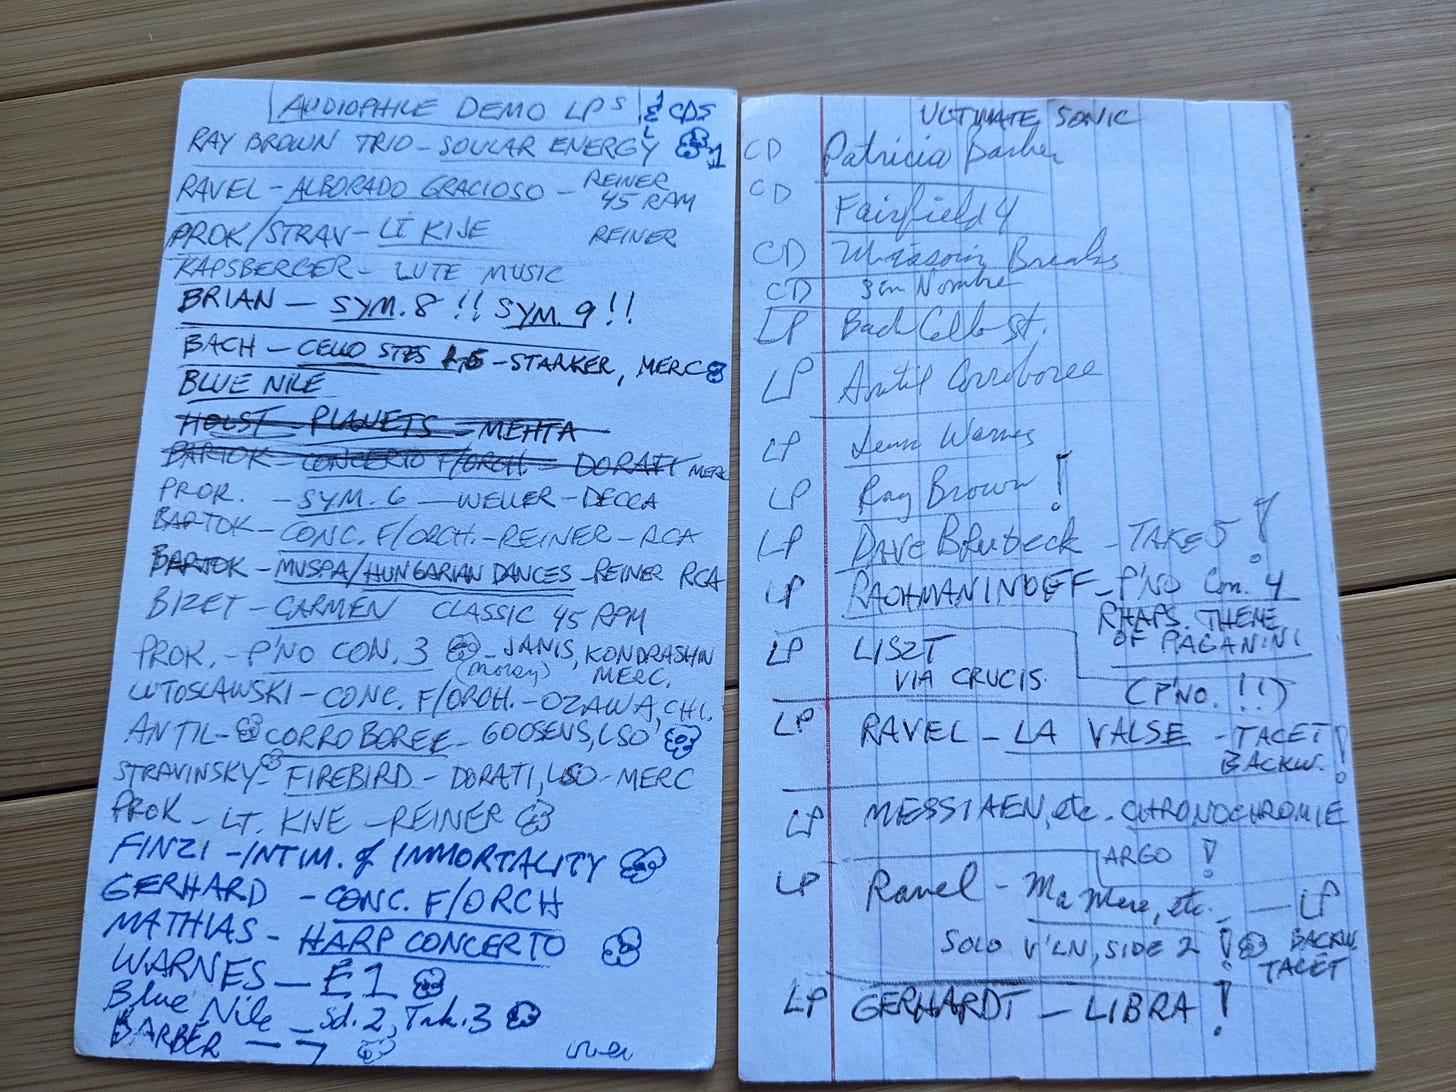 AUDIOPHILE DEMO LPS & CDS
RAY BROWN TRIO - SOULAR ENERGY 1
RAVEL - ALBORADO GRACIOSO - REINER
45 RAM
PROK/STRAV - LT KIJE REINER
KAPSBERGER - LUTE MUSIC
BRIAN - SYM. 8 !! SYM. 9 !!
BACH - CELLO STES - STARKER, MERC
BLUE NILE
HOLST - PLANETS - MEHTA
BARTOK - CONCERTO F/ORCH. - DORATI MERC
PROK. - SYM. 6 - WELLER - DECCA
BARTOK - CONC. F/ORCH. - REINER - RCA
BARTOK - MUSPA/HUNGARIAN DANCES - REINER RCA
BIZET - CARMEN CLASSIC 45 RPM
PROK. - P'NO CON. 3 - JANIS, KONDRASHIN
MERC.
LUTOSLAWSKI - CONC. F/ORCH. - OZAWA, CHI.
ANTIL - CORROBOREE - GOOSENS, LSO
STRAVINSKY FIREBIRD - DORATI, LSO - MERC
PROK - LT. KIJE - REINER
FINZI - INTIM. of IMMORTALITY
GERHARD - CONC. F/ORCH
MATHIAS - HARP CONCERTO
WARNES - E1
Blue Nile - Sd. 2, Trk. 3
BARBER - 7
over
ULTIMATE SONIC
CD Patricia Barber
CD Fairfield 4
CD Breaks
CD Sin Nombre
LP Bach Cello St.
LP Antil Corroboree
LP Jenn Warnes
LP Ray Brown !
LP DAVE BRUBECK - TAKE 5 !
LP RACHMANINOFF - P'NO Con. 4
RHAPS. THEME
OF PAGANINI
(P'NO. !!)
LP LISZT
VIA CRUCIS
LP RAVEL - LA VALSE - TACET !
BACKW.
LP MESSIAEN, etc. CHRONOCHROMIE
ARGO !
LP Ravel - Ma Mere, etc. - LP
SOLO V'LN, SIDE 2 ! BACKW.
TACET
LP GERHARDT - LIBRA !